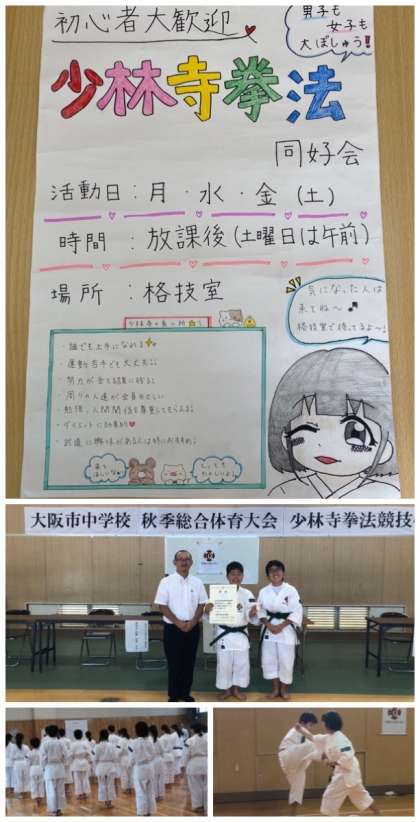 初心者大歓迎
男子も
女子も
大ぼしゅう!!
少林寺拳法
同好会
活動日：月・水・金 (土)
時間：放課後(土曜日は午前)
場所：格技室
気になった人は
来てね～♪
格技室で待ってるよ～!
少林寺の良い所
・誰でも上手になれる
・運動苦手でも大丈夫!!
・努力が全て結果に残る!
・周りの人達が全員やさしい
・勉強、人間関係を尊重してもらえる!
・ダイエットに効果的
・武道に興味がある人は特におすすめ!
大阪市中学校 秋季総合体育大会 少林寺拳法競技